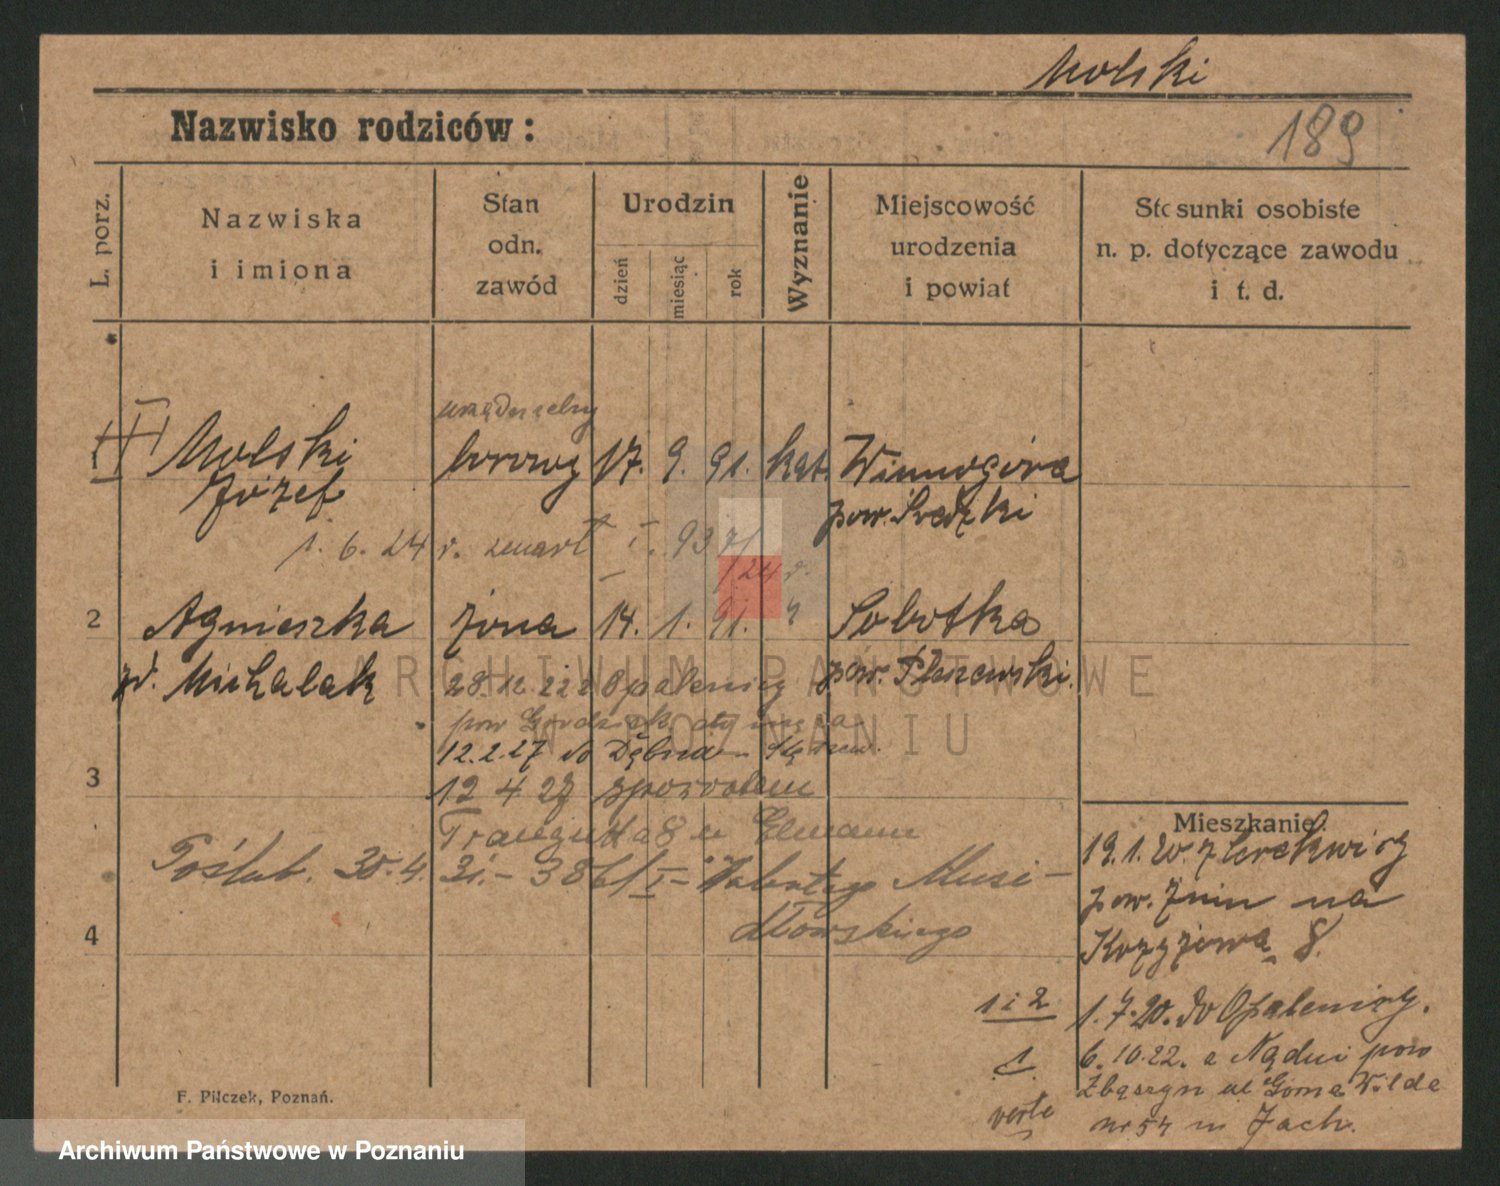 Molski
Nazwisko rodziców:
189
L. porz.
Nazwiska
i imiona
Stan
odn.
zawód
Urodzin
dzień
miesiąc
rok
Wyznanie
Miejscowość
urodzenia
i powiat
Stosunki osobiste
n. p. dotyczące zawodu
i t. d.
1
Molski borowy 17. 9. 91. kat. Winnogóra
Józef pow. Średzki
1. 6. 24 r. zmarł I. 937/
/24 r.
2 Agnieszka żona 14. 1. 91. " Sobotka
zd. Michalak pow. Pleszewski.
28.12.22 z Opalenicy
pow
12.2.27 do
3 12 4 27 z powrotem
Traugutta 8 u
Poślub. 30.4. 31.- 386/I-
4
Mieszkanie:
19.1.20. z Cerekwicy
pow. Żnin na
Krzyżową 8.
1 i 2 1.7.20. do Opalenicy.
1 6.10.22. z pow
Zbąszyn ul Górna Wilda
verte nr 54 m Jach.
F. Pilczek, Poznań.
ARCHIWUM PAŃSTWOWE
W POZNANIU
Archiwum Państwowe w Poznaniu